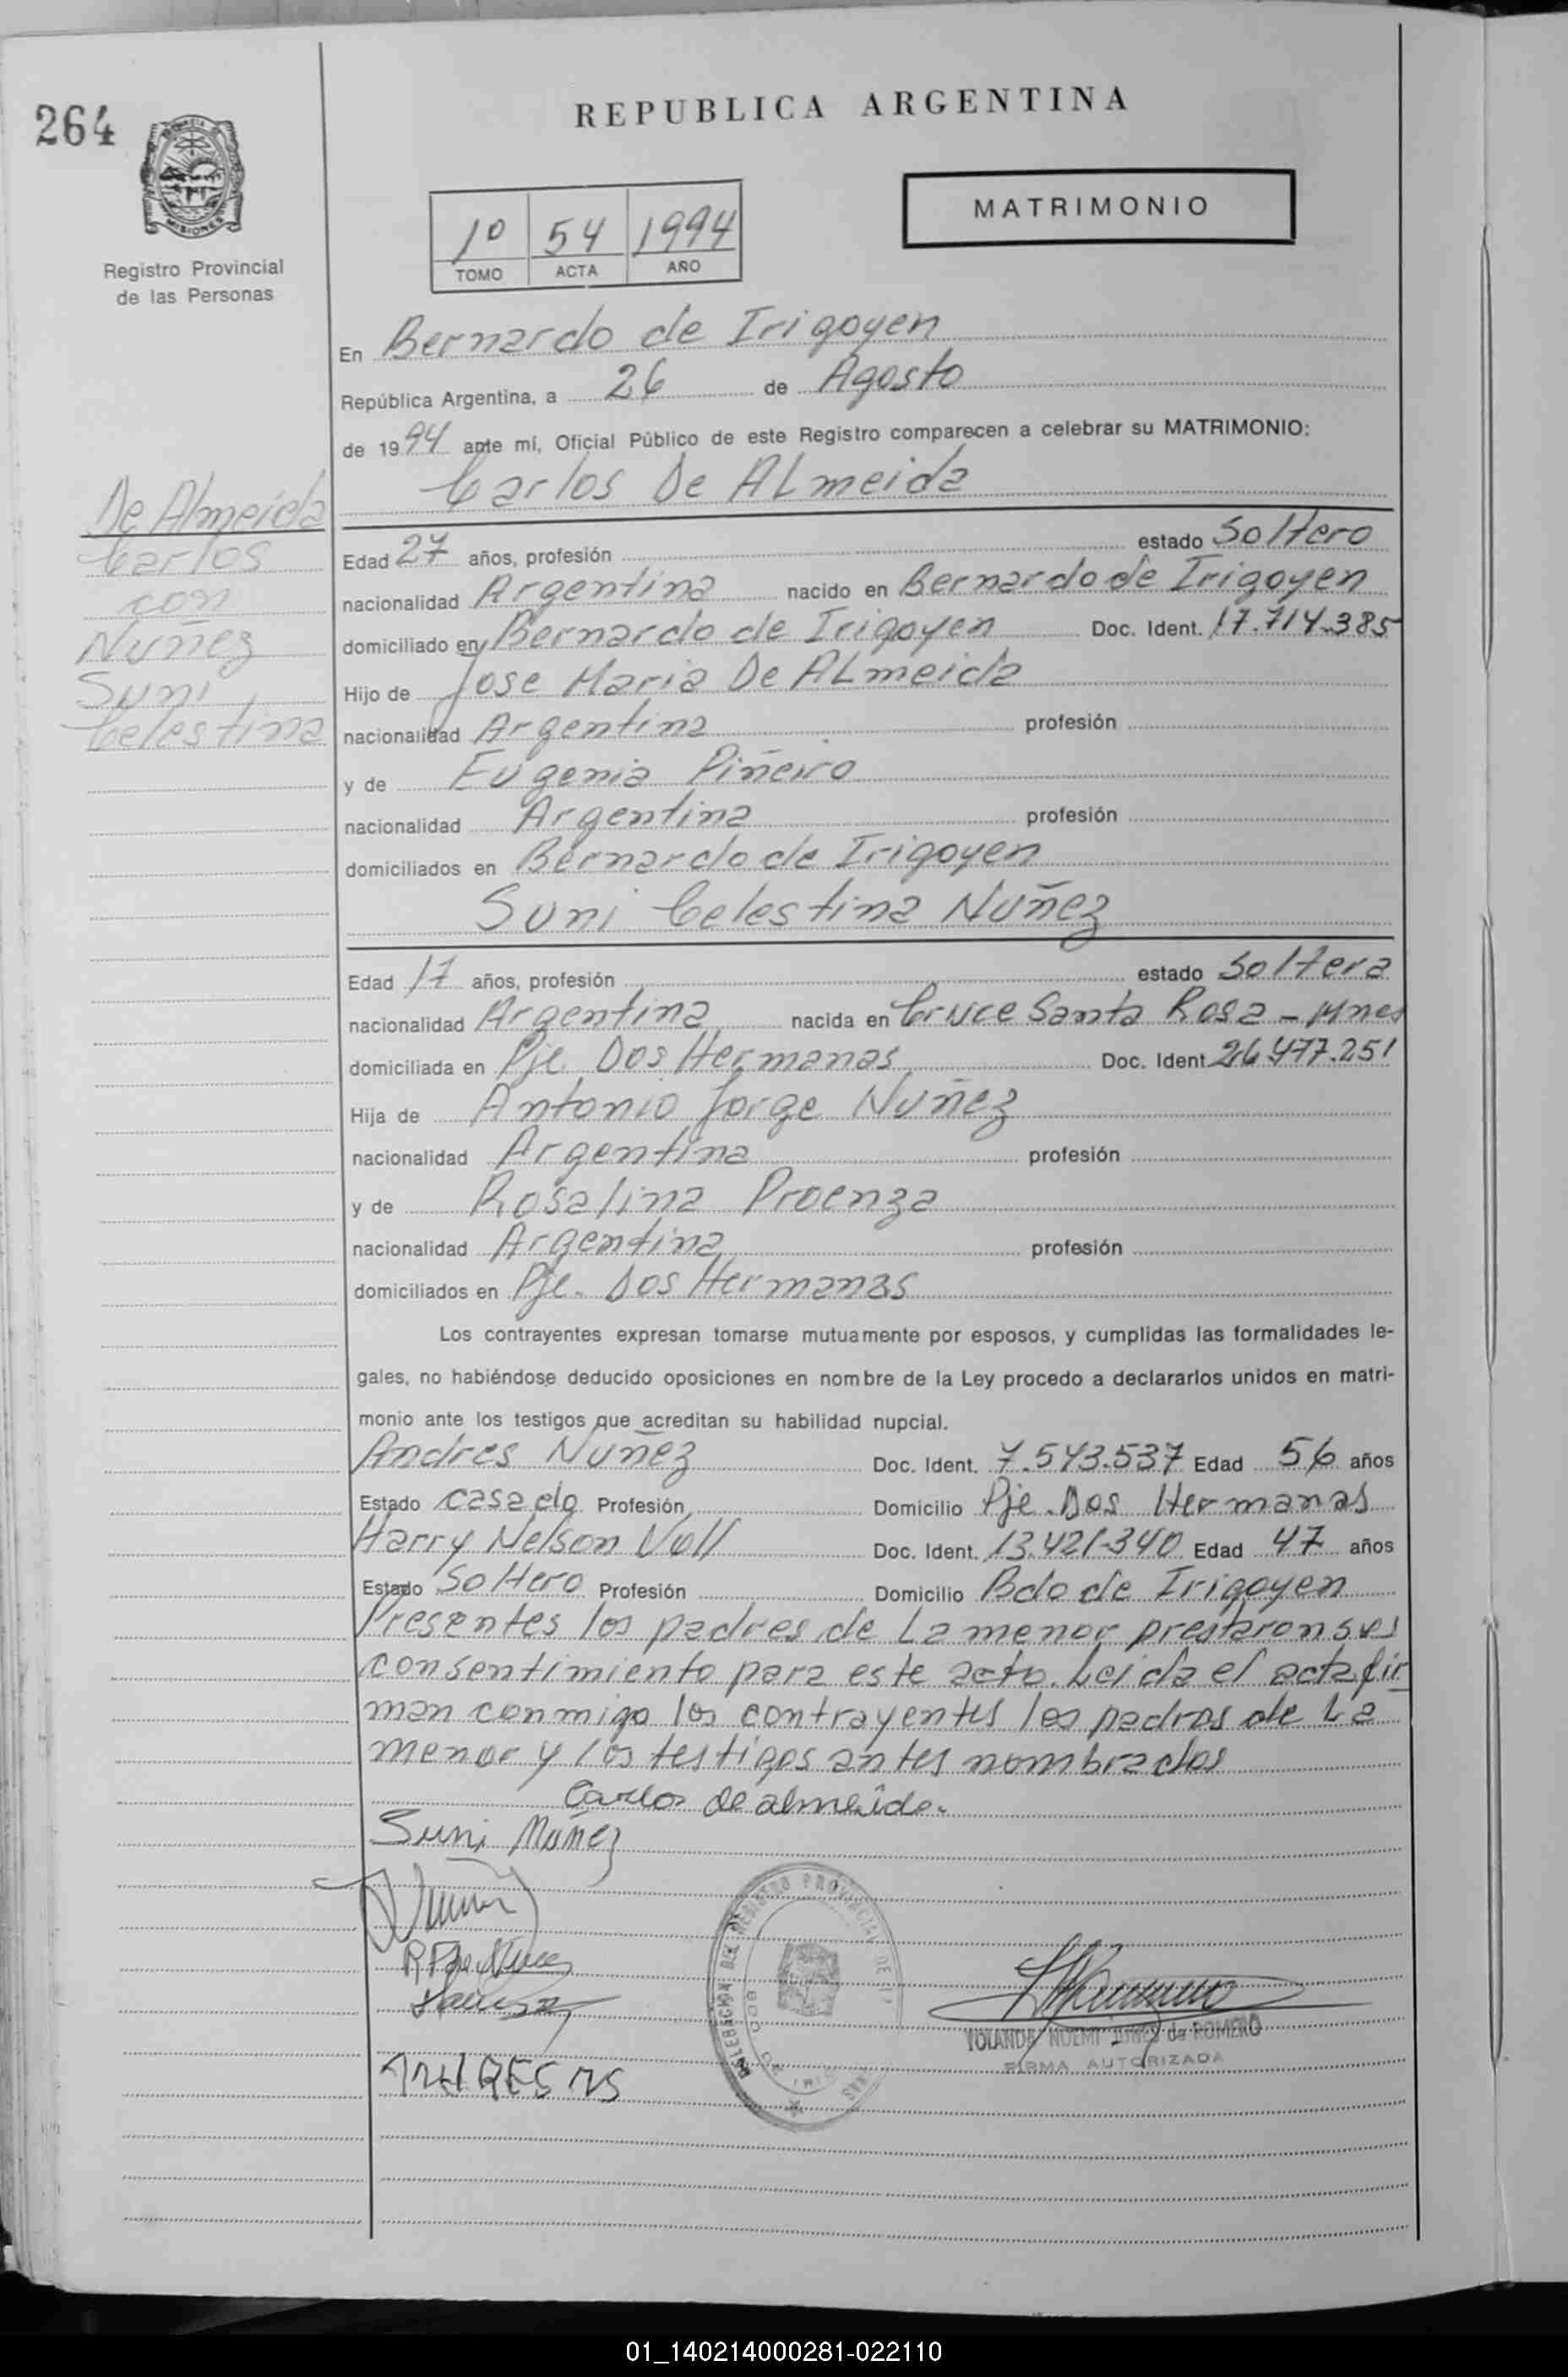 264
REPUBLICA ARGENTINA
MISIONES
Registro Provincial
de las Personas
MATRIMONIO
1º 54 1994
TOMO ACTA AÑO
En Bernardo de Irigoyen
República Argentina, a 26 de Agosto
de 1994 ante mí, Oficial Público de este Registro comparecen a celebrar su MATRIMONIO:
Carlos De ALmeida
De Almeida
Carlos
con
Nuñez
Suni
Celestina
Edad 27 años, profesión estado Soltero
nacionalidad Argentina nacido en Bernardo de Irigoyen
domiciliado en Bernardo de Irigoyen Doc. Ident. 17.714.385
Hijo de Jose Maria De ALmeida
nacionalidad Argentina profesión
y de Eugenia Piñeiro
nacionalidad Argentina profesión
domiciliados en Bernardo de Irigoyen
Suni Celestina Nuñez
Edad 17 años, profesión estado Soltera
nacionalidad Argentina nacida en Cruce Santa Rosa - Mnes
domiciliada en Pje Dos Hermanas Doc. Ident. 26.477.251
Hija de Antonio Jorge Nuñez
nacionalidad Argentina profesión
y de Rosalina Proenza
nacionalidad Argentina profesión
domiciliados en Pje. Dos Hermanas
Los contrayentes expresan tomarse mutuamente por esposos, y cumplidas las formalidades le-
gales, no habiéndose deducido oposiciones en nombre de la Ley procedo a declararlos unidos en matri-
monio ante los testigos que acreditan su habilidad nupcial.
Andres Nuñez Doc. Ident. 7.543.537 Edad 56 años
Estado casado Profesión Domicilio Pje. Dos Hermanas
Harry Nelson Voll Doc. Ident. 13.421.340 Edad 47 años
Estado Soltero Profesión Domicilio Bdo de Irigoyen
Presentes los padres de La menor prestaron sus
consentimiento para este acto. Leida el acta fir
man conmigo los contrayentes los padres de La
menor y los testigos antes nombrados
Carlos de almeida.
Suni Nuñez
DELEGACION DEL REGISTRO PROVINCIAL DE
YOLANDA NOEMI de ROMERO
FIRMA AUTORIZADA
01_140214000281-022110